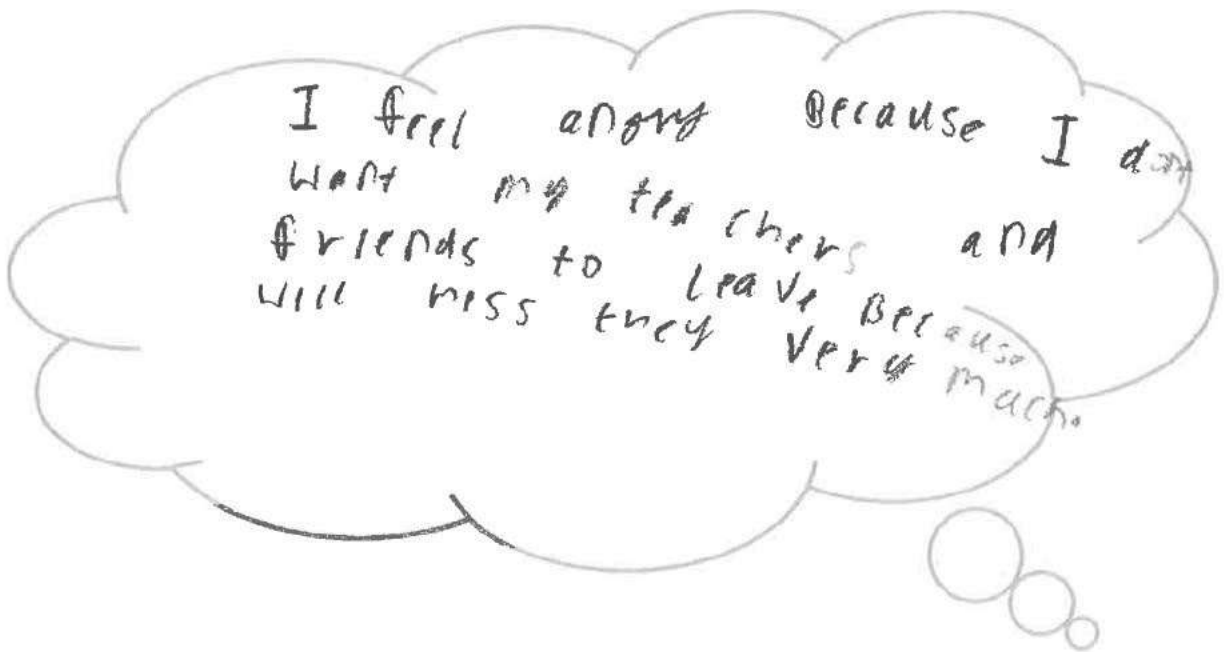 I feel angry Because I dont
want my teachers and
friends to leave Because
will miss they very much.